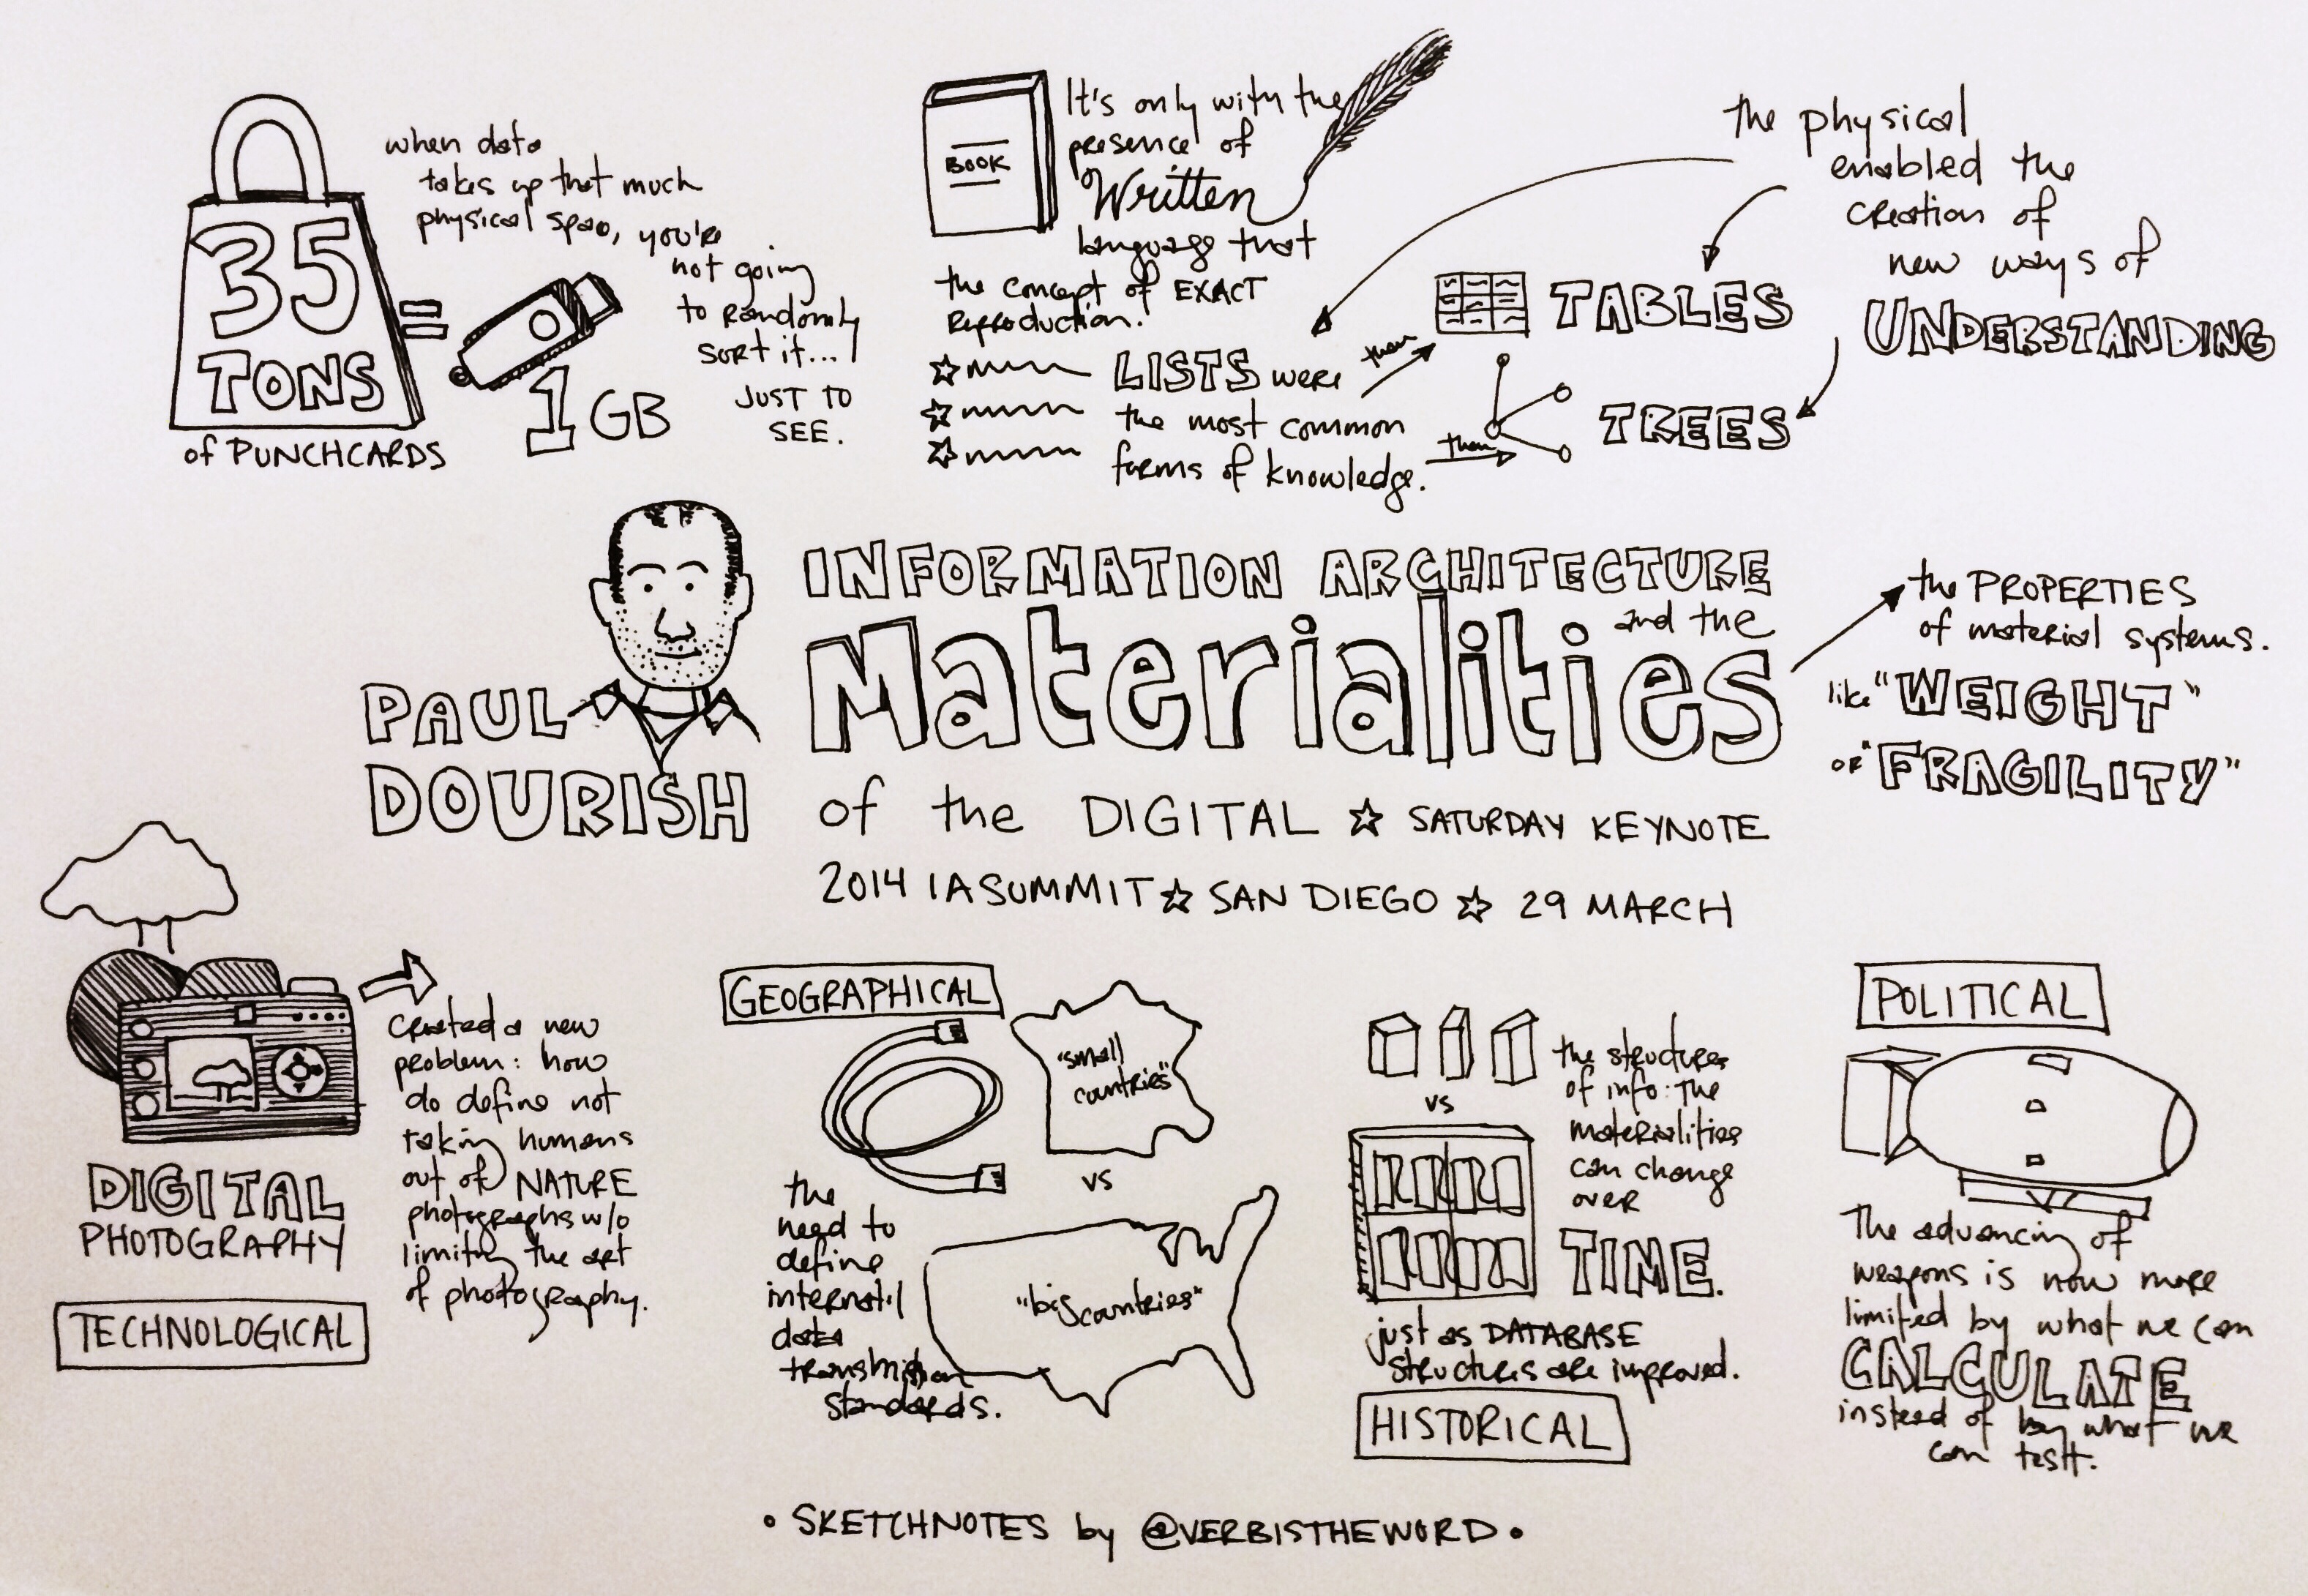 35
TONS
of PUNCHCARDS
=
1 GB
when data
takes up that much
physical space, you're
not going
to randomly
sort it...
JUST TO
SEE.
BOOK
It's only with the
presence of
Written
language that
the concept of EXACT
Reproduction.
LISTS were
the most common
forms of knowledge.
then
TABLES
then
TREES
the physical
enabled the
creation of
new ways of
UNDERSTANDING
PAUL
DOURISH
INFORMATION ARCHITECTURE
and the
Materialities
of the DIGITAL ☆ SATURDAY KEYNOTE
2014 IA SUMMIT ☆ SAN DIEGO ☆ 29 MARCH
the PROPERTIES
of material systems.
like "WEIGHT"
or "FRAGILITY"
DIGITAL
PHOTOGRAPHY
TECHNOLOGICAL
Created a new
problem: how
do define not
taking humans
out of NATURE
photographs w/o
limiting the art
of photography.
GEOGRAPHICAL
"small
countries"
vs
"big countries"
the
need to
define
internat'l
data
transmission
standards.
vs
the structures
of info: the
materialities
can change
over
TIME.
just as DATABASE
structures are improved.
HISTORICAL
POLITICAL
The advancing of
weapons is now more
limited by what we can
CALCULATE
instead of by what we
can test.
• SKETCHNOTES by @VERBISTHEWORD •